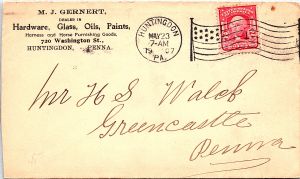 M. J. GERNERT,
DEALER IN
Hardware, Glass, Oils, Paints,
Harness and Horse Furnishing Goods,
720 Washington St.,
HUNTINGDON, - PENNA.
HUNTINGDON
MAY 23
7-AM
1907
PA.
Mr H S Walck
Greencastle
Penna